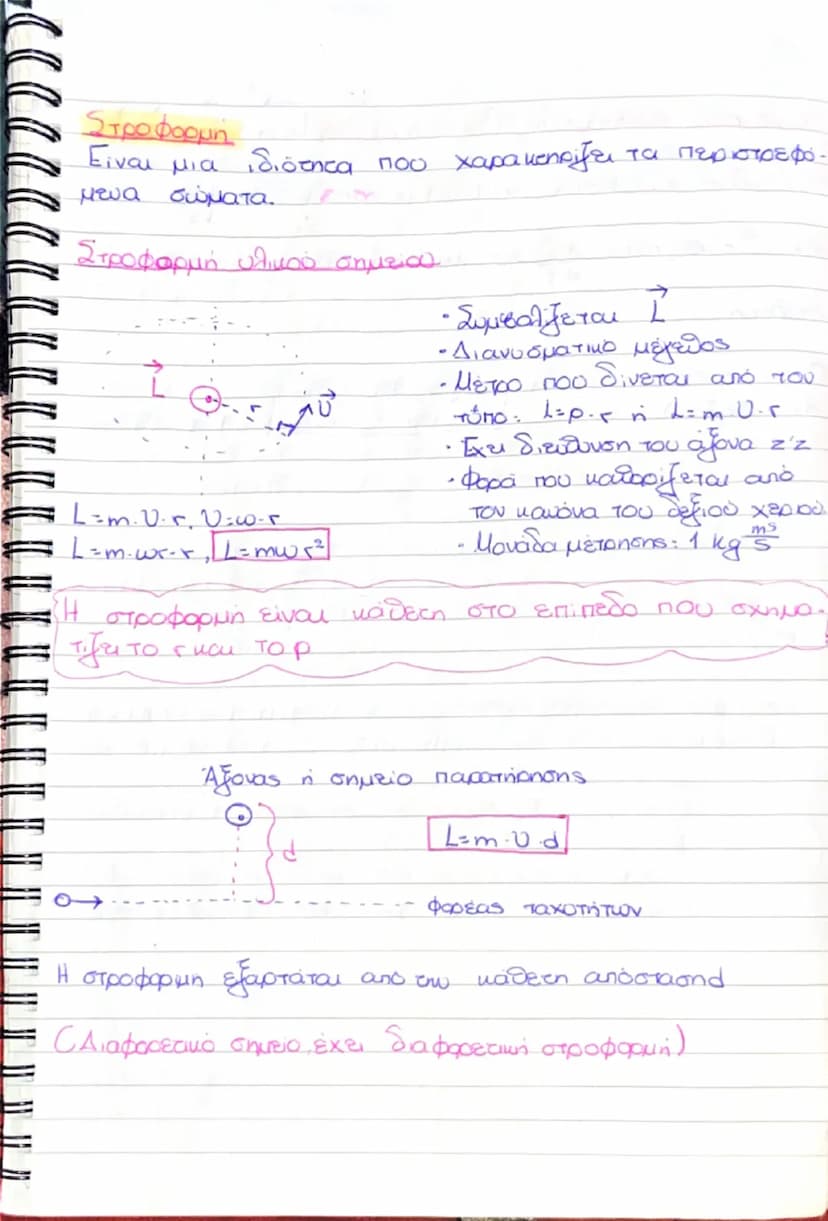 Στροφορμή
Είναι μια ιδιότητα που χαρακτηρίζει τα περιστρεφό-
μενα σώματα.
Στροφορμή υλικού σημείου
· Συμβολίζεται L⃗
· Διανυσματικό μέγεθος
· Μέτρο που δίνεται από τον
τύπο: L=p·r ή L=m·υ·r
· Έχει διεύθυνση του άξονα z'z
· Φορά που καθορίζεται από
τον κανόνα του δεξιού χεριού
· Μονάδα μέτρησης: 1 kg m²/s
L⃗
r
υ⃗
L=m·υ·r, υ=ω·r
L=m·ωr·r, L=mωr²
Η στροφορμή είναι κάθετη στο επίπεδο που σχημα-
τίζει το r και το p
Άξονας ή σημείο παρατήρησης
d
L=m·υ·d
φορέας ταχυτήτων
Η στροφορμή εξαρτάται από την κάθετη απόσταση d
(Διαφορετικό σημείο, έχει διαφορετική στροφορμή)